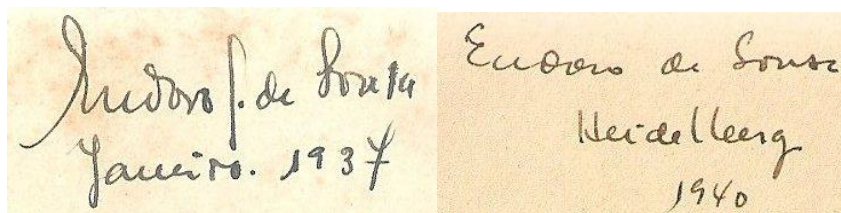 Eudoro S. de Sousa
Janeiro. 1937
Eudoro de Sousa
Heidelberg
1940